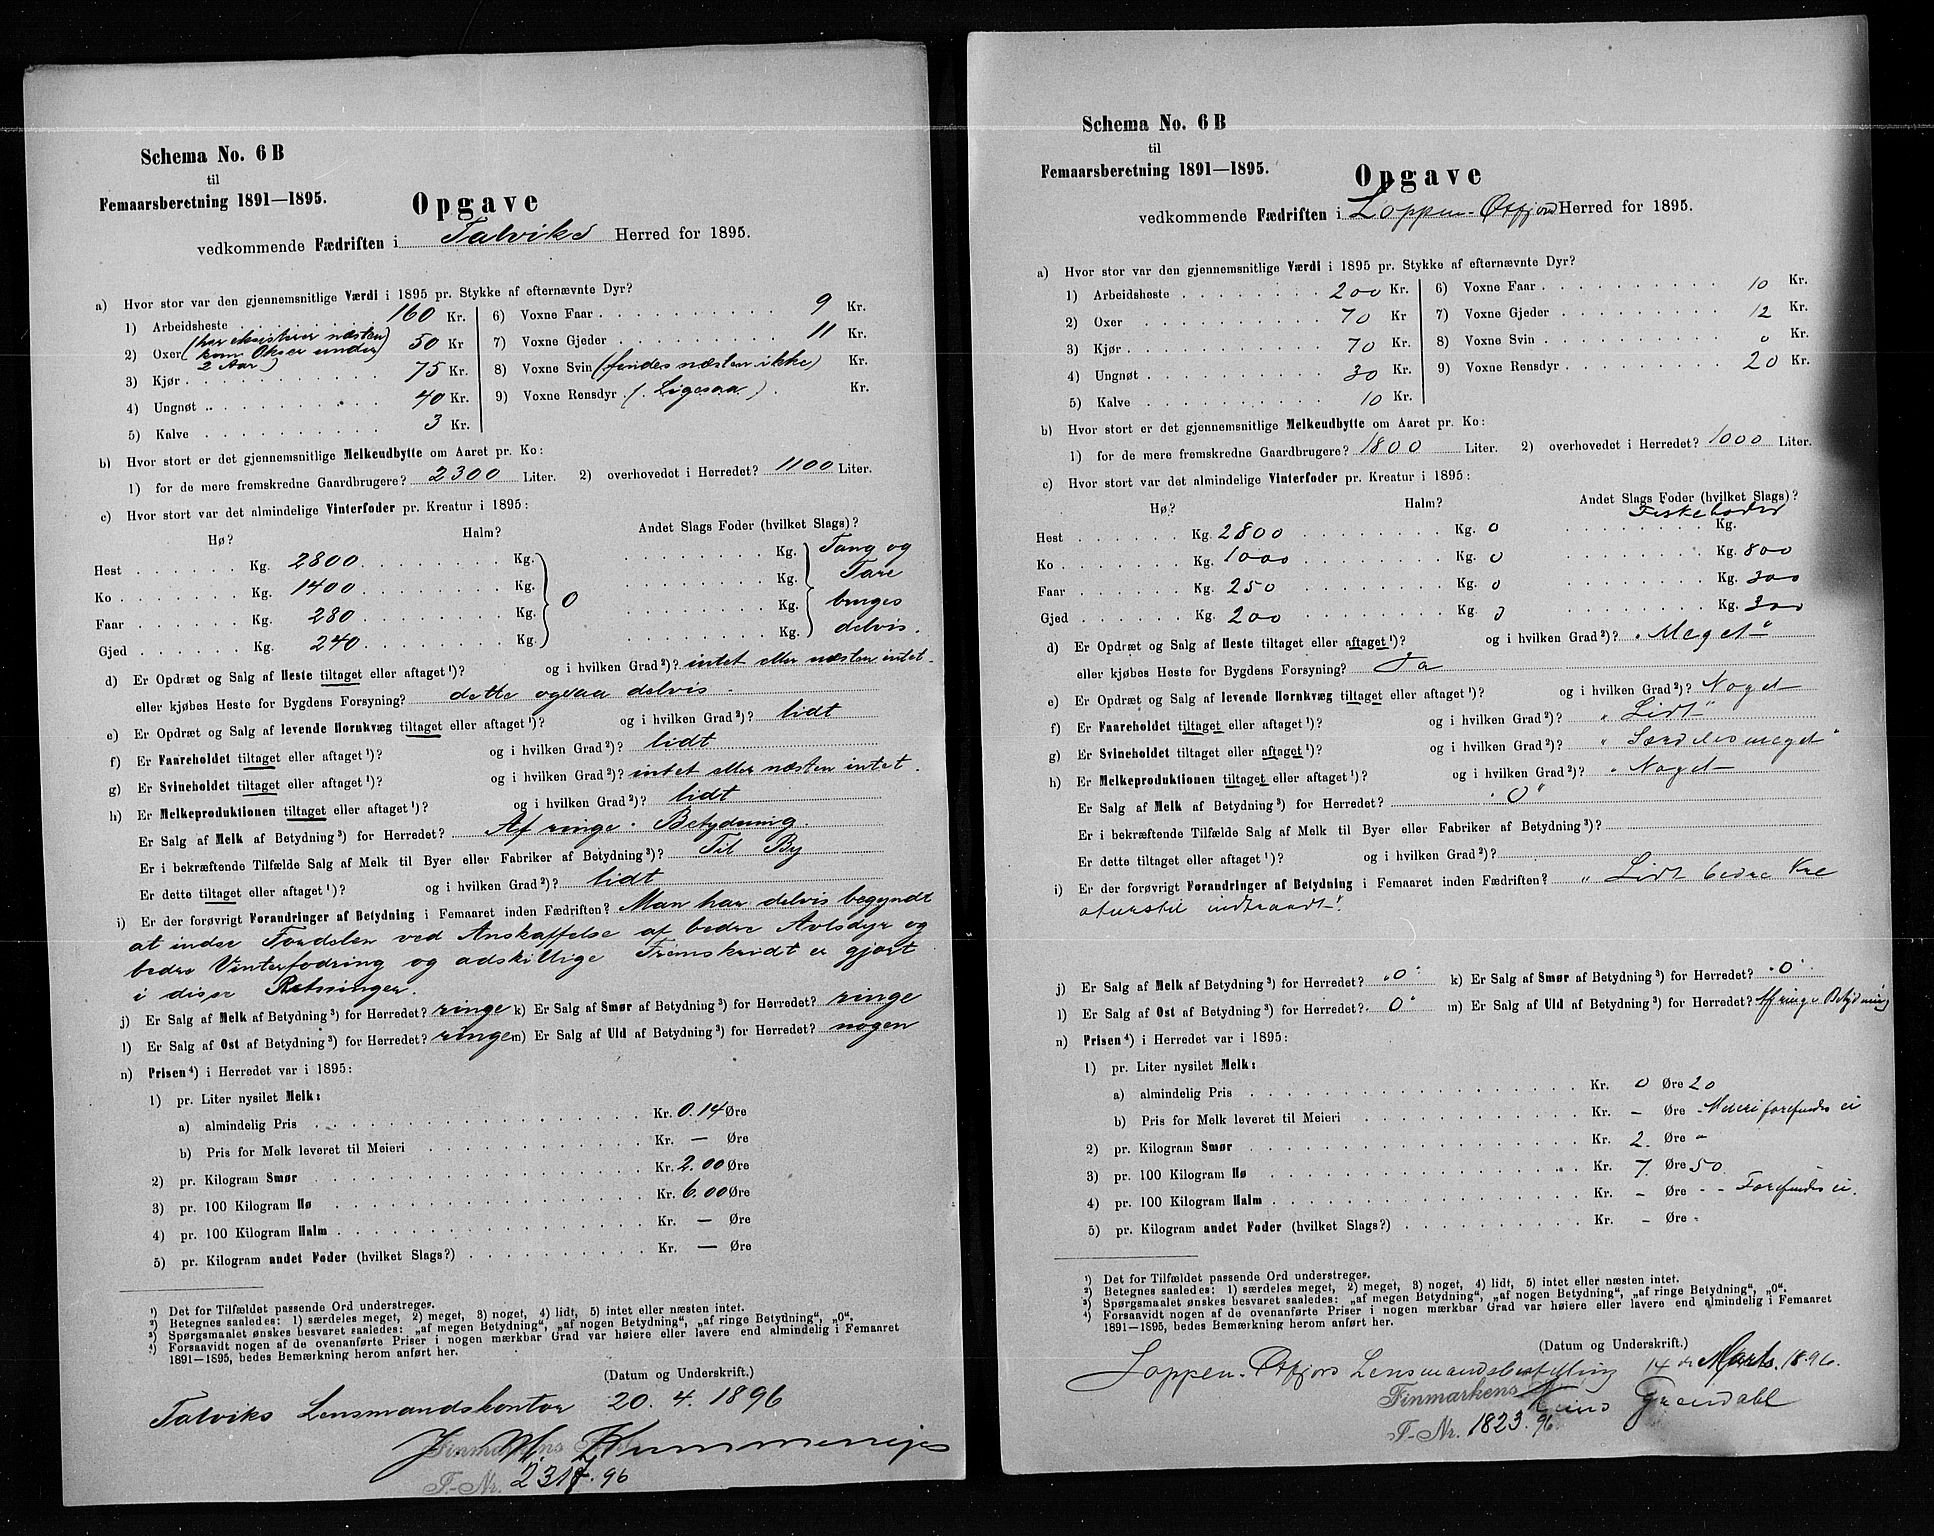 Schema No. 6 B
til
Femaarsberetning 1891—1895.
Opgave
vedkommende Fædriften i Talviks Herred for 1895.
a) Hvor stor var den gjennemsnitlige Værdi i 1895 pr. Stykke af efternævnte Dyr?
1) Arbeidsheste 160 Kr.
2) Oxer (her eksisterer næsten kun Okser under 2 Aar) 50 Kr
3) Kjør 75 Kr.
4) Ungnøt 40 Kr.
5) Kalve 3 Kr.
6) Voxne Faar 9 Kr.
7) Voxne Gjeder 11 Kr.
8) Voxne Svin (findes næsten ikke) Kr.
9) Voxne Rensdyr (Ligesaa) Kr.
b) Hvor stort er det gjennemsnitlige Melkeudbytte om Aaret pr. Ko:
1) for de mere fremskredne Gaardbrugere? 2300 Liter. 2) overhovedet i Herredet? 1100 Liter.
c) Hvor stort var det almindelige Vinterfoder pr. Kreatur i 1895:
Hø? Halm? Andet Slags Foder (hvilket Slags)?
Hest Kg. 2800 Kg. Kg. Tang og
Ko Kg. 1400 Kg. 0 Kg. Tare
Faar Kg. 280 Kg. Kg. bruges
Gjed Kg. 240 Kg. Kg. delvis.
d) Er Opdræt og Salg af Heste tiltaget eller aftaget¹)? og i hvilken Grad²)? intet eller næsten intet.
eller kjøbes Heste for Bygdens Forsyning? dette ogsaa delvis.
e) Er Opdræt og Salg af levende Hornkvæg tiltaget eller aftaget¹)? og i hvilken Grad²)? lidt
f) Er Faareholdet tiltaget eller aftaget¹)? og i hvilken Grad²)? lidt
g) Er Svineholdet tiltaget eller aftaget¹)? og i hvilken Grad²)? intet eller næsten intet.
h) Er Melkeproduktionen tiltaget eller aftaget¹)? og i hvilken Grad²)? lidt
Er Salg af Melk af Betydning³) for Herredet? Af ringe Betydning.
Er i bekræftende Tilfælde Salg af Melk til Byer eller Fabriker af Betydning³)? Til By
Er dette tiltaget eller aftaget¹)? og i hvilken Grad²)? lidt
i) Er der forøvrigt Forandringer af Betydning i Femaaret inden Fædriften? Man har delvis begyndt
at indse Fordelen ved Anskaffelse af bedre Avlsdyr og
bedre Vinterfodring og adskillige Fremskridt er gjort
i disse Retninger.
j) Er Salg af Melk af Betydning³) for Herredet? ringe k) Er Salg af Smør af Betydning³) for Herredet? ringe
l) Er Salg af Ost af Betydning³) for Herredet? ringe m) Er Salg af Uld af Betydning³) for Herredet? nogen
n) Prisen⁴) i Herredet var i 1895:
1) pr. Liter nysilet Melk:
a) almindelig Pris Kr. 0.14 Øre
b) Pris for Melk leveret til Meieri Kr. — Øre
2) pr. Kilogram Smør Kr. 2.00 Øre
3) pr. 100 Kilogram Hø Kr. 6.00 Øre
4) pr. 100 Kilogram Halm Kr. — Øre
5) pr. Kilogram andet Foder (hvilket Slags?) Kr. — Øre
¹) Det for Tilfældet passende Ord understreges.
²) Betegnes saaledes: 1) særdeles meget, 2) meget, 3) noget, 4) lidt, 5) intet eller næsten intet.
³) Spørgsmaalet ønskes besvaret saaledes: „af megen Betydning“, „af nogen Betydning“, „af ringe Betydning“, „0“.
⁴) Forsaavidt nogen af de ovenanførte Priser i nogen mærkbar Grad var høiere eller lavere end almindelig i Femaaret
1891—1895, bedes Bemærkning herom anført her.
(Datum og Underskrift.)
Talviks Lensmandskontor 20.4.1896
J. Finmarkens
F.-Nr. 2317.96
Schema No. 6 B
til
Femaarsberetning 1891—1895.
Opgave
vedkommende Fædriften i Loppen-Øxfjord Herred for 1895.
a) Hvor stor var den gjennemsnitlige Værdi i 1895 pr. Stykke af efternævnte Dyr?
1) Arbeidsheste 200 Kr.
2) Oxer 70 Kr
3) Kjør 70 Kr.
4) Ungnøt 30 Kr.
5) Kalve 10 Kr.
6) Voxne Faar 10 Kr.
7) Voxne Gjeder 12 Kr.
8) Voxne Svin 0 Kr.
9) Voxne Rensdyr 20 Kr.
b) Hvor stort er det gjennemsnitlige Melkeudbytte om Aaret pr. Ko:
1) for de mere fremskredne Gaardbrugere? 1800 Liter. 2) overhovedet i Herredet? 1000 Liter.
c) Hvor stort var det almindelige Vinterfoder pr. Kreatur i 1895:
Hø? Halm? Andet Slags Foder (hvilket Slags)?
Fiskehoder
Hest Kg. 2800 Kg. 0 Kg.
Ko Kg. 1000 Kg. 0 Kg. 800
Faar Kg. 250 Kg. 0 Kg. 300
Gjed Kg. 200 Kg. 0 Kg. 300
d) Er Opdræt og Salg af Heste tiltaget eller aftaget¹)? og i hvilken Grad²)? „Meget“
eller kjøbes Heste for Bygdens Forsyning? Ja
e) Er Opdræt og Salg af levende Hornkvæg tiltaget eller aftaget¹)? og i hvilken Grad²)? Noget
f) Er Faareholdet tiltaget eller aftaget¹)? og i hvilken Grad²)? „Lidt“
g) Er Svineholdet tiltaget eller aftaget¹)? og i hvilken Grad²)? „Særdeles meget“
h) Er Melkeproduktionen tiltaget eller aftaget¹)? og i hvilken Grad²)? „Noget
Er Salg af Melk af Betydning³) for Herredet? „0“
Er i bekræftende Tilfælde Salg af Melk til Byer eller Fabriker af Betydning³)?
Er dette tiltaget eller aftaget¹)? og i hvilken Grad²)?
i) Er der forøvrigt Forandringer af Betydning i Femaaret inden Fædriften? „Lidt bedre Kre
aturstil indtraadt“.
j) Er Salg af Melk af Betydning³) for Herredet? „0“ k) Er Salg af Smør af Betydning³) for Herredet? „0“
l) Er Salg af Ost af Betydning³) for Herredet? „0“ m) Er Salg af Uld af Betydning³) for Herredet? Af ringe Betydning
n) Prisen⁴) i Herredet var i 1895:
1) pr. Liter nysilet Melk:
a) almindelig Pris Kr. 0 Øre 20
b) Pris for Melk leveret til Meieri Kr. – Øre – Meieri forefindes ei
2) pr. Kilogram Smør Kr. 2. Øre –
3) pr. 100 Kilogram Hø Kr. 7. Øre 50
4) pr. 100 Kilogram Halm Kr. – Øre – – Forefindes ei.
5) pr. Kilogram andet Foder (hvilket Slags?) Kr. – Øre –
¹) Det for Tilfældet passende Ord understreges.
²) Betegnes saaledes: 1) særdeles meget, 2) meget, 3) noget, 4) lidt, 5) intet eller næsten intet.
³) Spørgsmaalet ønskes besvaret saaledes: „af megen Betydning“, „af nogen Betydning“, „af ringe Betydning“, „0“.
⁴) Forsaavidt nogen af de ovenanførte Priser i nogen mærkbar Grad var høiere eller lavere end almindelig i Femaaret
1891—1895, bedes Bemærkning herom anført her.
(Datum og Underskrift.)
Loppen-Øxfjord Lensmandsbestilling 14 de Marts. 1896.
Finmarkens Grøndahl
F.-Nr. 1823.96